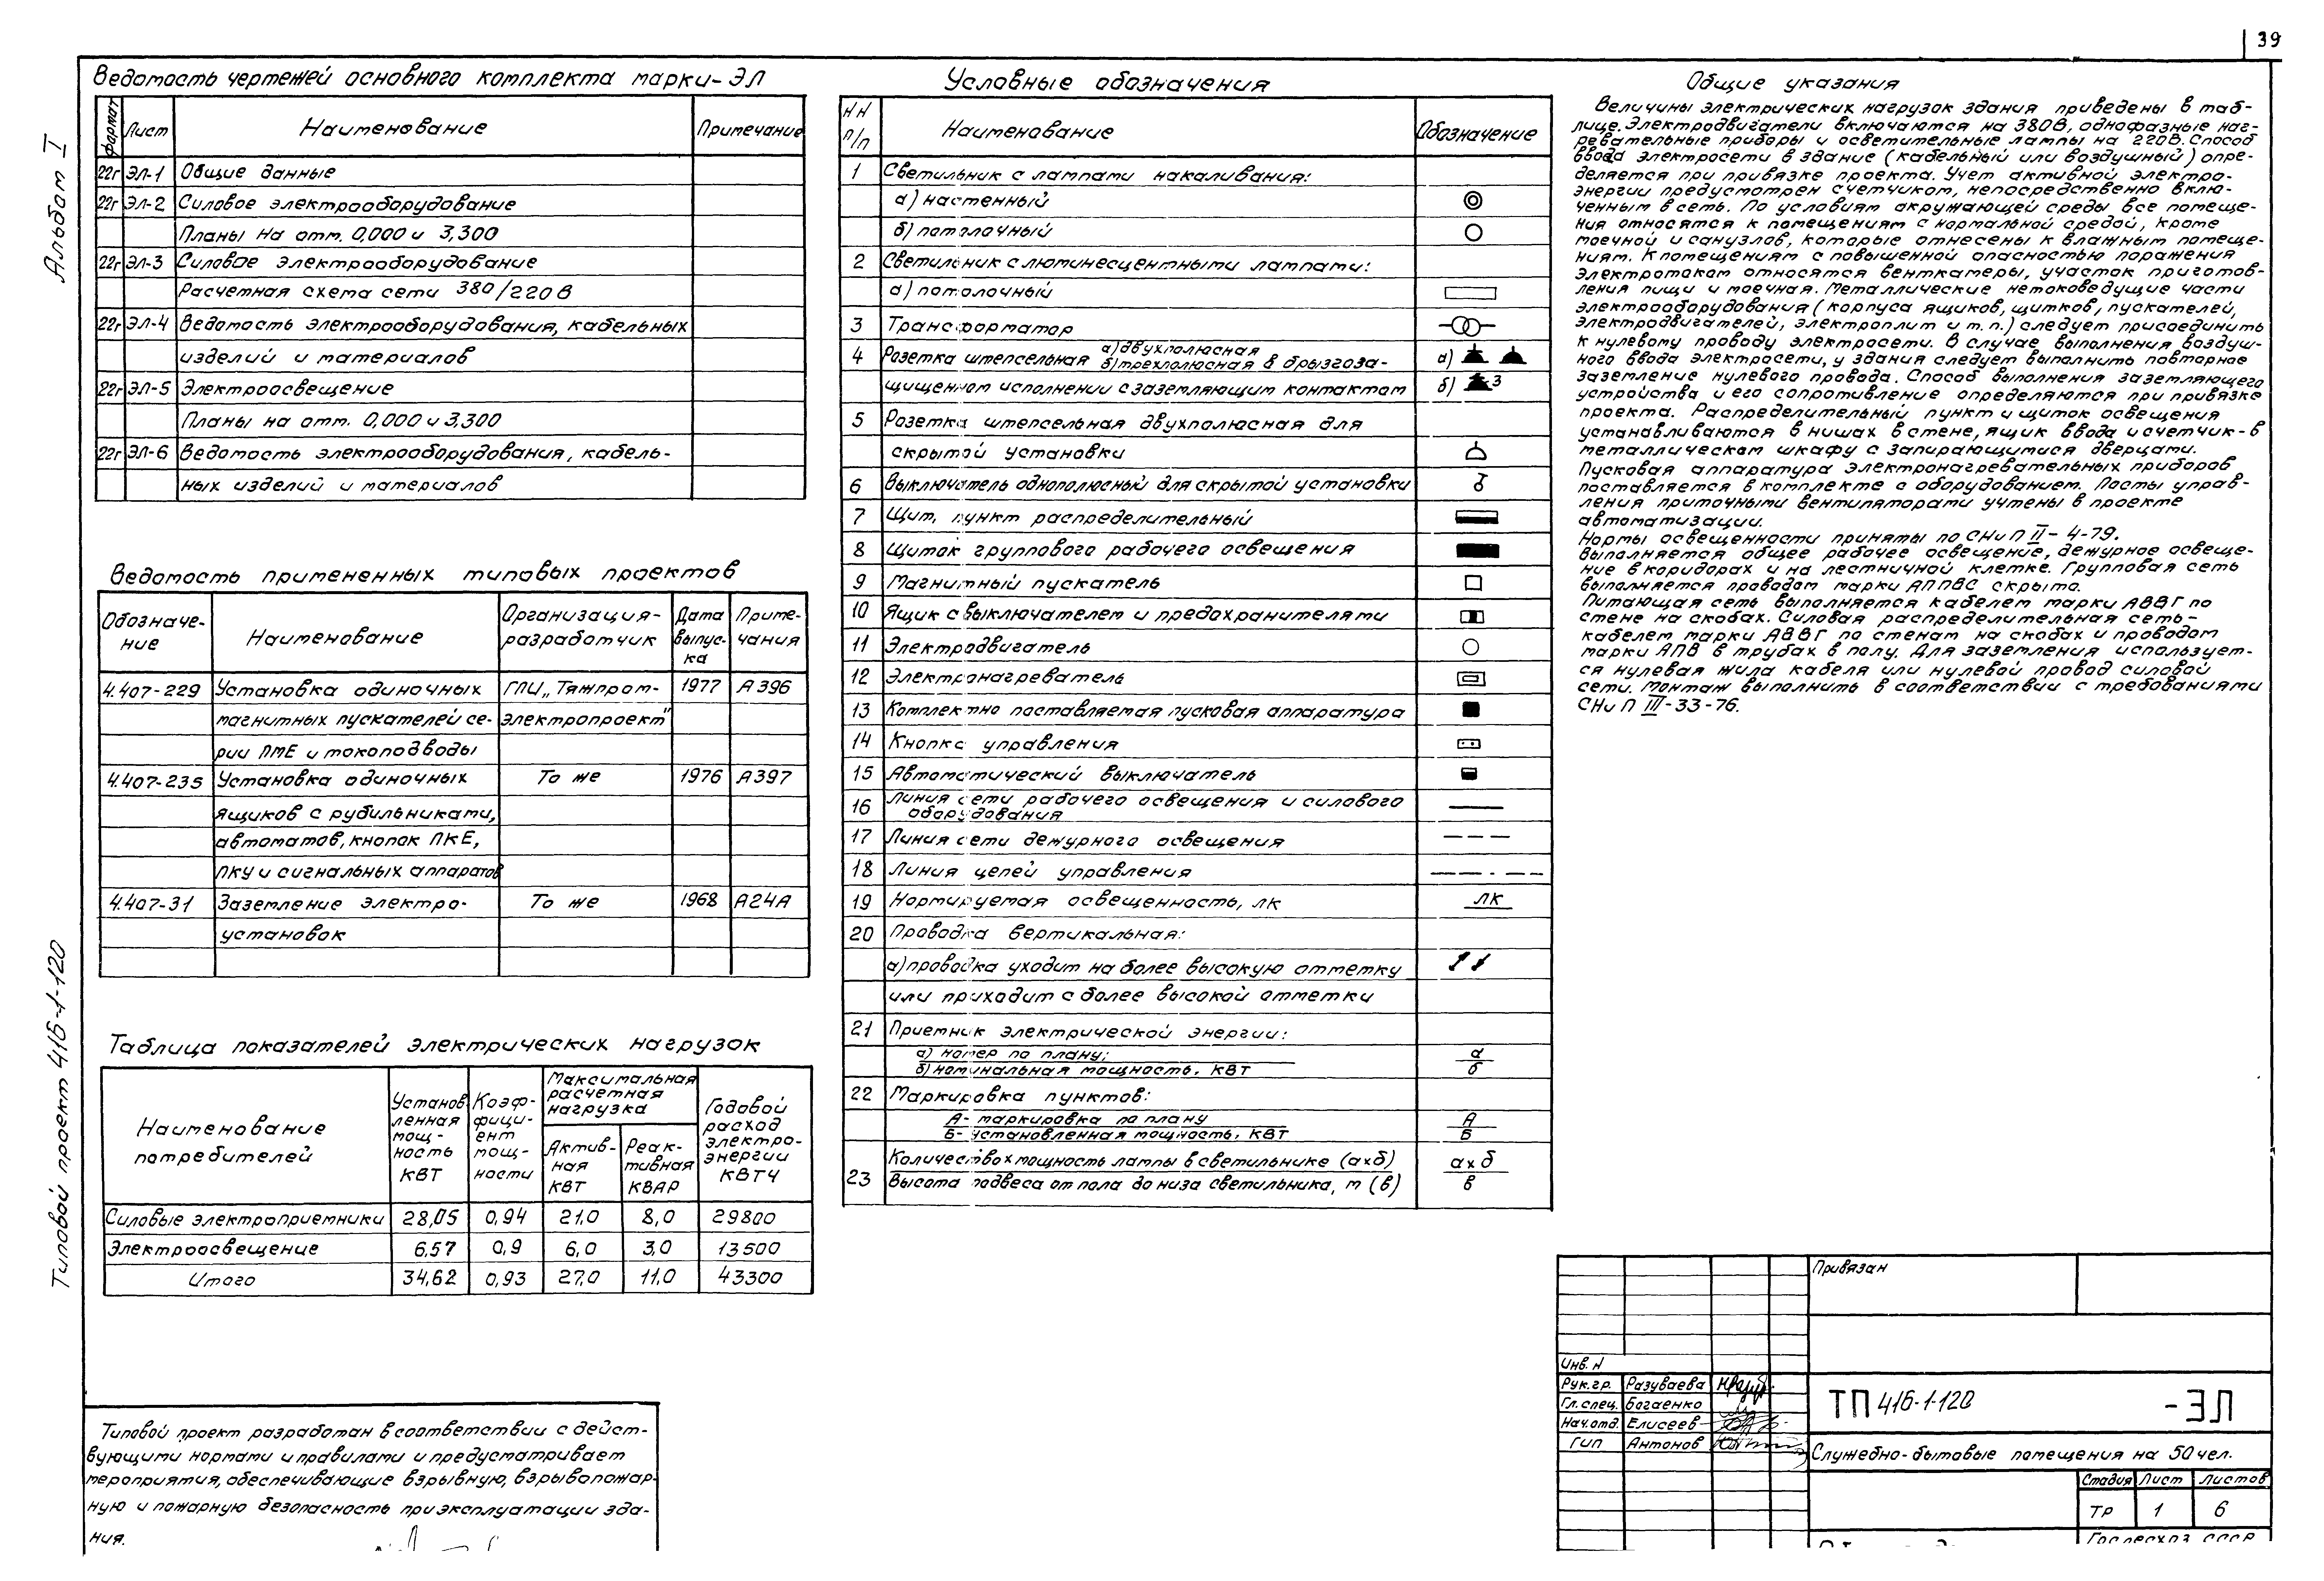 39
Альбом I
Типовой проект 416-1-120
Ведомость чертежей основного комплекта марки-ЭЛ
формат Лист Наименование Примечание
22г ЭЛ-1 Общие данные
22г ЭЛ-2 Силовое электрооборудование
Планы на отм. 0,000 и 3,300
22г ЭЛ-3 Силовое электрооборудование
Расчетная схема сети 380/220 В
22г ЭЛ-4 Ведомость электрооборудования, кабельных
изделий и материалов
22г ЭЛ-5 Электроосвещение
Планы на отм. 0,000 и 3,300
22г ЭЛ-6 Ведомость электрооборудования, кабель-
ных изделий и материалов
Ведомость примененных типовых проектов
Обозначе-
ние
Наименование
Организация-
разработчик
Дата
выпус-
ка
Приме-
чания
4.407-229 Установка одиночных ГПИ „Тяжпром- 1977 А396
магнитных пускателей се- электропроект"
рии ПМЕ и токоподводы
4.407-235 Установка одиночных То же 1976 А397
ящиков с рубильниками,
автоматов, кнопок ПКЕ,
ПКУ и сигнальных аппаратов
4.407-31 Заземление электро- То же 1968 А24А
установок
Таблица показателей электрических нагрузок
Наименование
потребителей
Установ
ленная
мощ-
ность
КВТ
Коэф-
фици-
ент
мощ-
ности
Максимальная
расчетная
нагрузка
Актив-
ная
КВТ
Реак-
тивная
КВАР
Годовой
расход
электро-
энергии
КВТЧ
Силовые электроприемники 28,05 0,94 21,0 8,0 29800
Электроосвещение 6,57 0,9 6,0 3,0 13500
Итого 34,62 0,93 27,0 11,0 43300
Типовой проект разработан в соответствии с дейст-
вующими нормами и правилами и предусматривает
мероприятия, обеспечивающие взрывную, взрывопожар-
ную и пожарную безопасность при эксплуатации зда-
ния.
Условные обозначения
НН
п/п
Наименование Обозначение
1 Светильник с лампами накаливания:
а) настенный
б) потолочный
2 Светильник с люминесцентными лампами:
а) потолочный
3 Трансформатор
4 Розетка штепсельная а) двухполюсная б) трехполюсная в брызгоза- а)
щищенном исполнении с заземляющим контактом б) 3
5 Розетка штепсельная двухполюсная для
скрытой установки
6 Выключатель однополюсный для скрытой установки
7 Щит, пункт распределительный
8 Щиток группового рабочего освещения
9 Магнитный пускатель
10 Ящик с выключателем и предохранителями
11 Электродвигатель
12 Электронагреватель
13 Комплектно поставляемая пусковая аппаратура
14 Кнопка управления
15 Автоматический выключатель
16 Линия сети рабочего освещения и силового
оборудования
17 Линия сети дежурного освещения
18 Линия цепей управления
19 Нормируемая освещенность, лк ЛК
20 Проводка вертикальная:
а) проводка уходит на более высокую отметку
или приходит с более высокой отметки
21 Приемник электрической энергии:
а) номер по плану; а
б) номинальная мощность, КВТ б
22 Маркировка пунктов:
А- маркировка по плану А
Б- установленная мощность, КВТ Б
23 Количество х мощность лампы в светильнике (ахб) ахб
Высота подвеса от пола до низа светильника, м (в) в
Общие указания
Величины электрических нагрузок здания приведены в таб-
лице. Электродвигатели включаются на 380В, однофазные наг-
ревательные приборы и осветительные лампы на 220В. Способ
ввода электросети в здание (кабельный или воздушный) опре-
деляется при привязке проекта. Учет активной электро-
энергии предусмотрен счетчиком, непосредственно вклю-
ченным в сеть. По условиям окружающей среды все помеще-
ния относятся к помещениям с нормальной средой, кроме
моечной и санузлов, которые отнесены к влажным помеще-
ниям. К помещениям с повышенной опасностью поражения
электротоком относятся венткамеры, участок приготов-
ления пищи и моечная. Металлические нетоковедущие части
электрооборудования (корпуса ящиков, щитков, пускателей,
электродвигателей, электроплит и т.п.) следует присоединить
к нулевому проводу электросети. В случае выполнения воздуш-
ного ввода электросети, у здания следует выполнить повторное
заземление нулевого провода. Способ выполнения заземляющего
устройства и его сопротивление определяются при привязке
проекта. Распределительный пункт и щиток освещения
устанавливаются в нишах в стене, ящик ввода и счетчик - в
металлическом шкафу с запирающимися дверцами.
Пусковая аппаратура электронагревательных приборов
поставляется в комплекте с оборудованием. Посты управ-
ления приточными вентиляторами учтены в проекте
автоматизации.
Нормы освещенности приняты по СНиП II-4-79.
Выполняется общее рабочее освещение, дежурное освеще-
ние в коридорах и на лестничной клетке. Групповая сеть
выполняется проводом марки АППВС скрыто.
Питающая сеть выполняется кабелем марки АВВГ по
стене на скобах. Силовая распределительная сеть-
кабелем марки АВВГ по стенам на скобах и проводом
марки АПВ в трубах в полу. Для заземления использует-
ся нулевая жила кабеля или нулевой провод силовой
сети. Монтаж выполнить в соответствии с требованиями
СНиП III-33-76.
Привязан
Инв. N
Рук.гр. Разуваева
Гл.спец. Богаенко
Нач.отд. Елисеев
ГИП Антонов
ТП 416-1-120 -ЭЛ
Служебно-бытовые помещения на 50 чел.
Стадия Лист Листов
ТР 1 6
Гослесхоз СССР